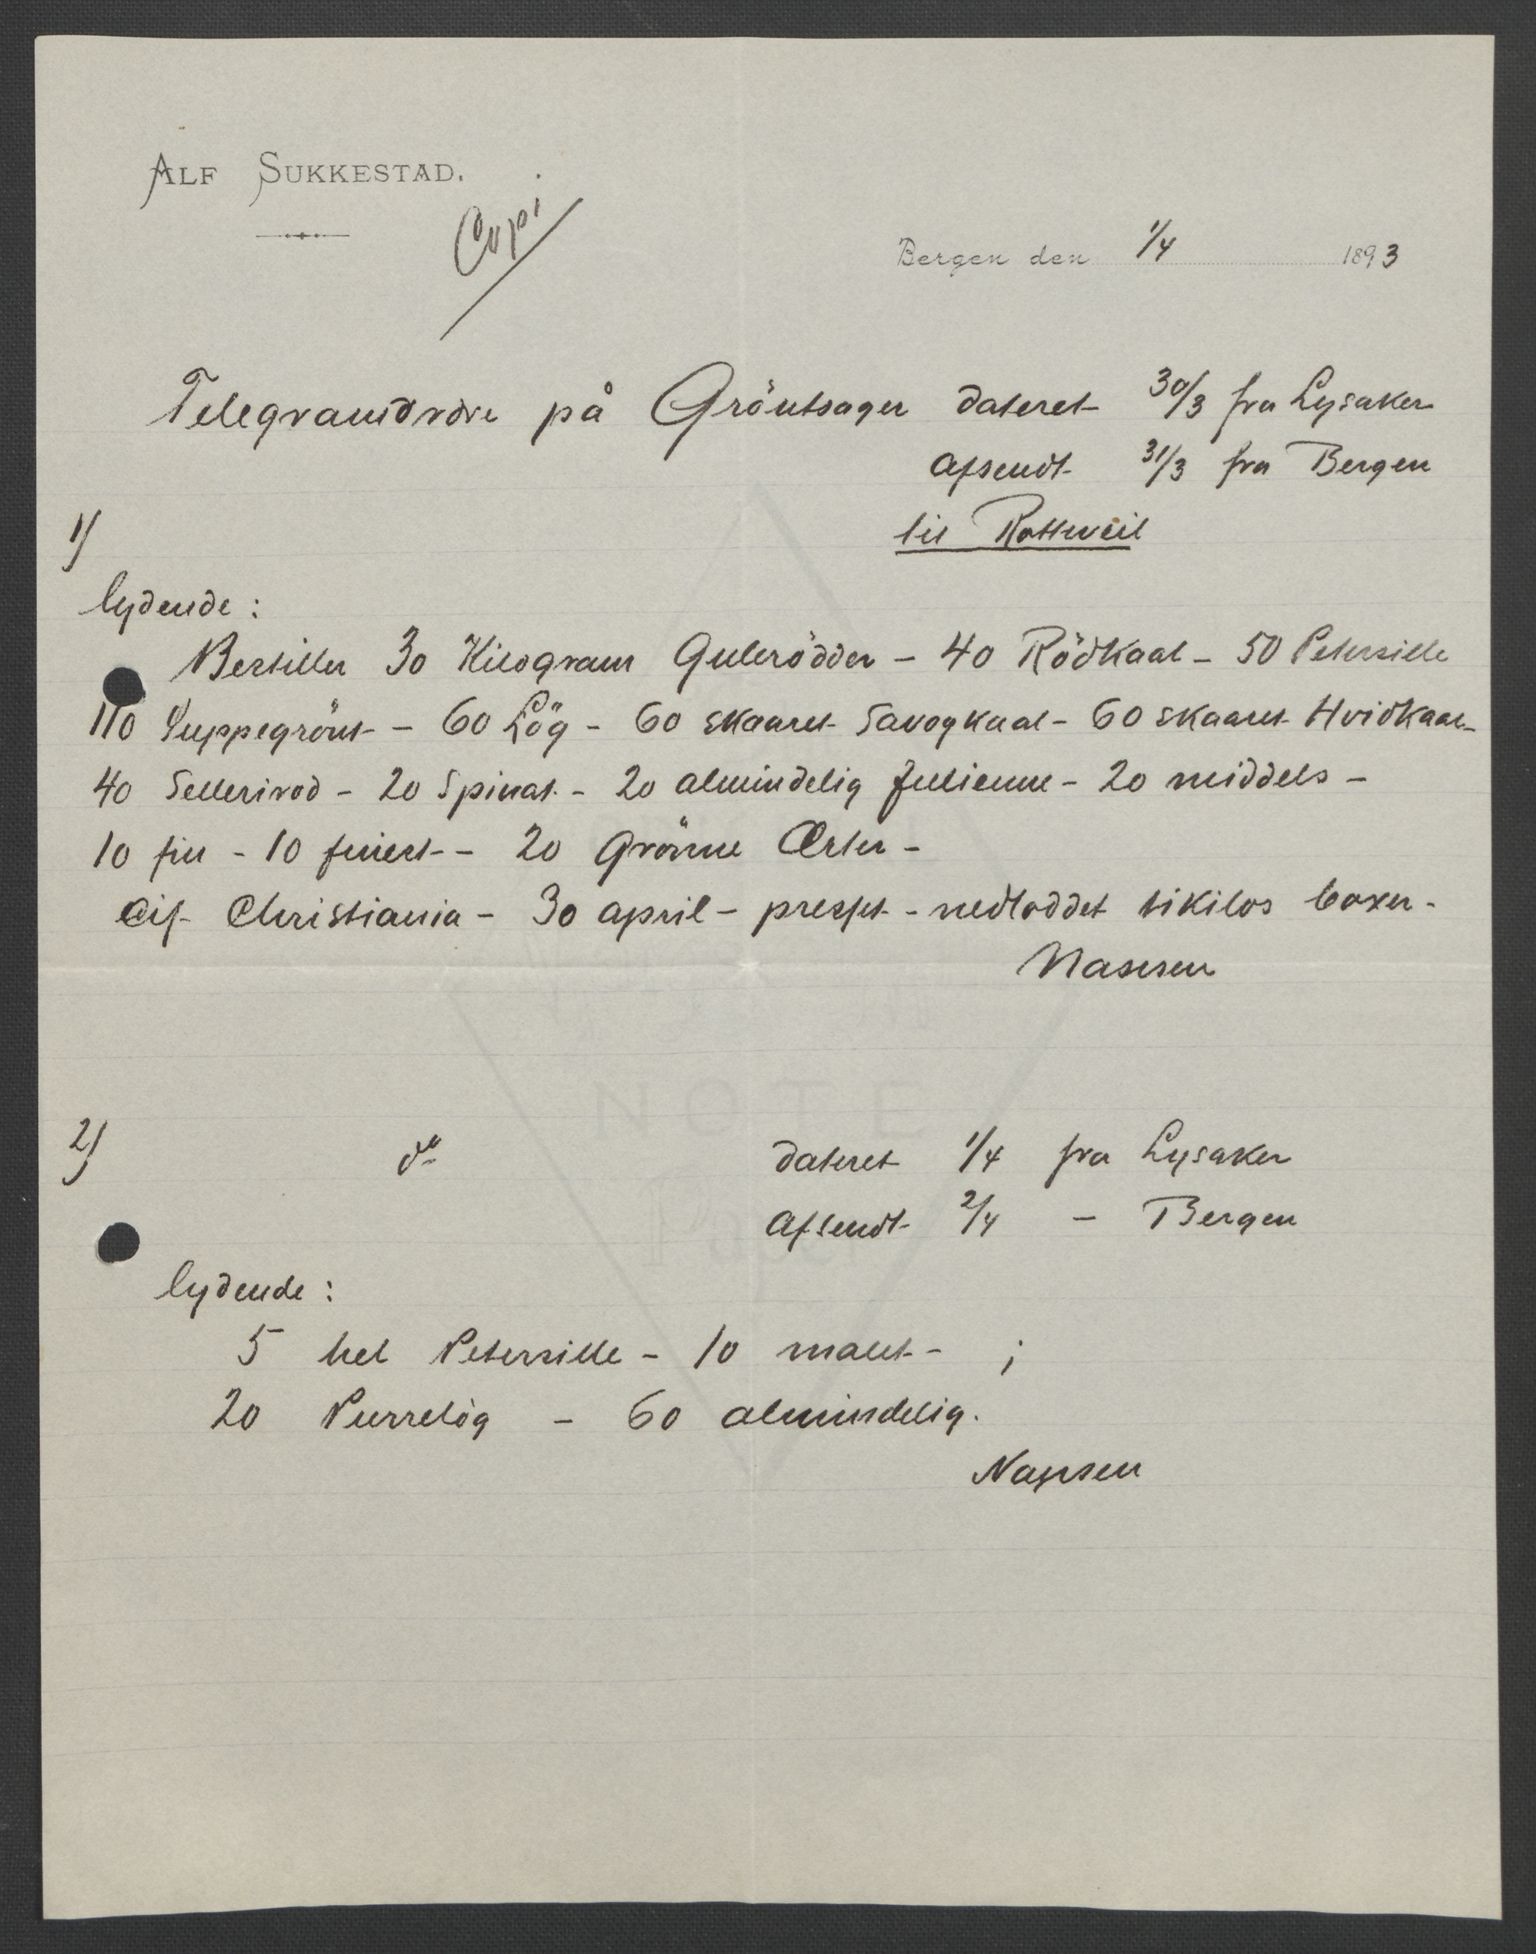 ALF SUKKESTAD.
Copi
Bergen den 1/4 1893
Telegramordre på Gröntsager dateret 30/3 fra Lysaker
afsendt 31/3 fra Bergen
til Rottweil
1/
lydende:
Bestiller 30 Kilogram Gulerödder - 40 Rödkaal - 50 Petersille
110 Suppegrönt - 60 Lög - 60 skaaret Savoykaal - 60 skaaret Hvidkaal -
40 Sellerirod - 20 Spinat - 20 almindelig Julienne - 20 middels -
10 fin - 10 finest - 20 Grönne Erter -
Cif Christiania - 30 april - presset - nedloddet tikilos boxer -
Nansen
2/
do dateret 1/4 fra Lysaker
afsendt 2/4 - Bergen
lydende:
5 hel Petersille - 10 malet - ;
20 Purrelög - 60 almindelig.
Nansen
NOTE